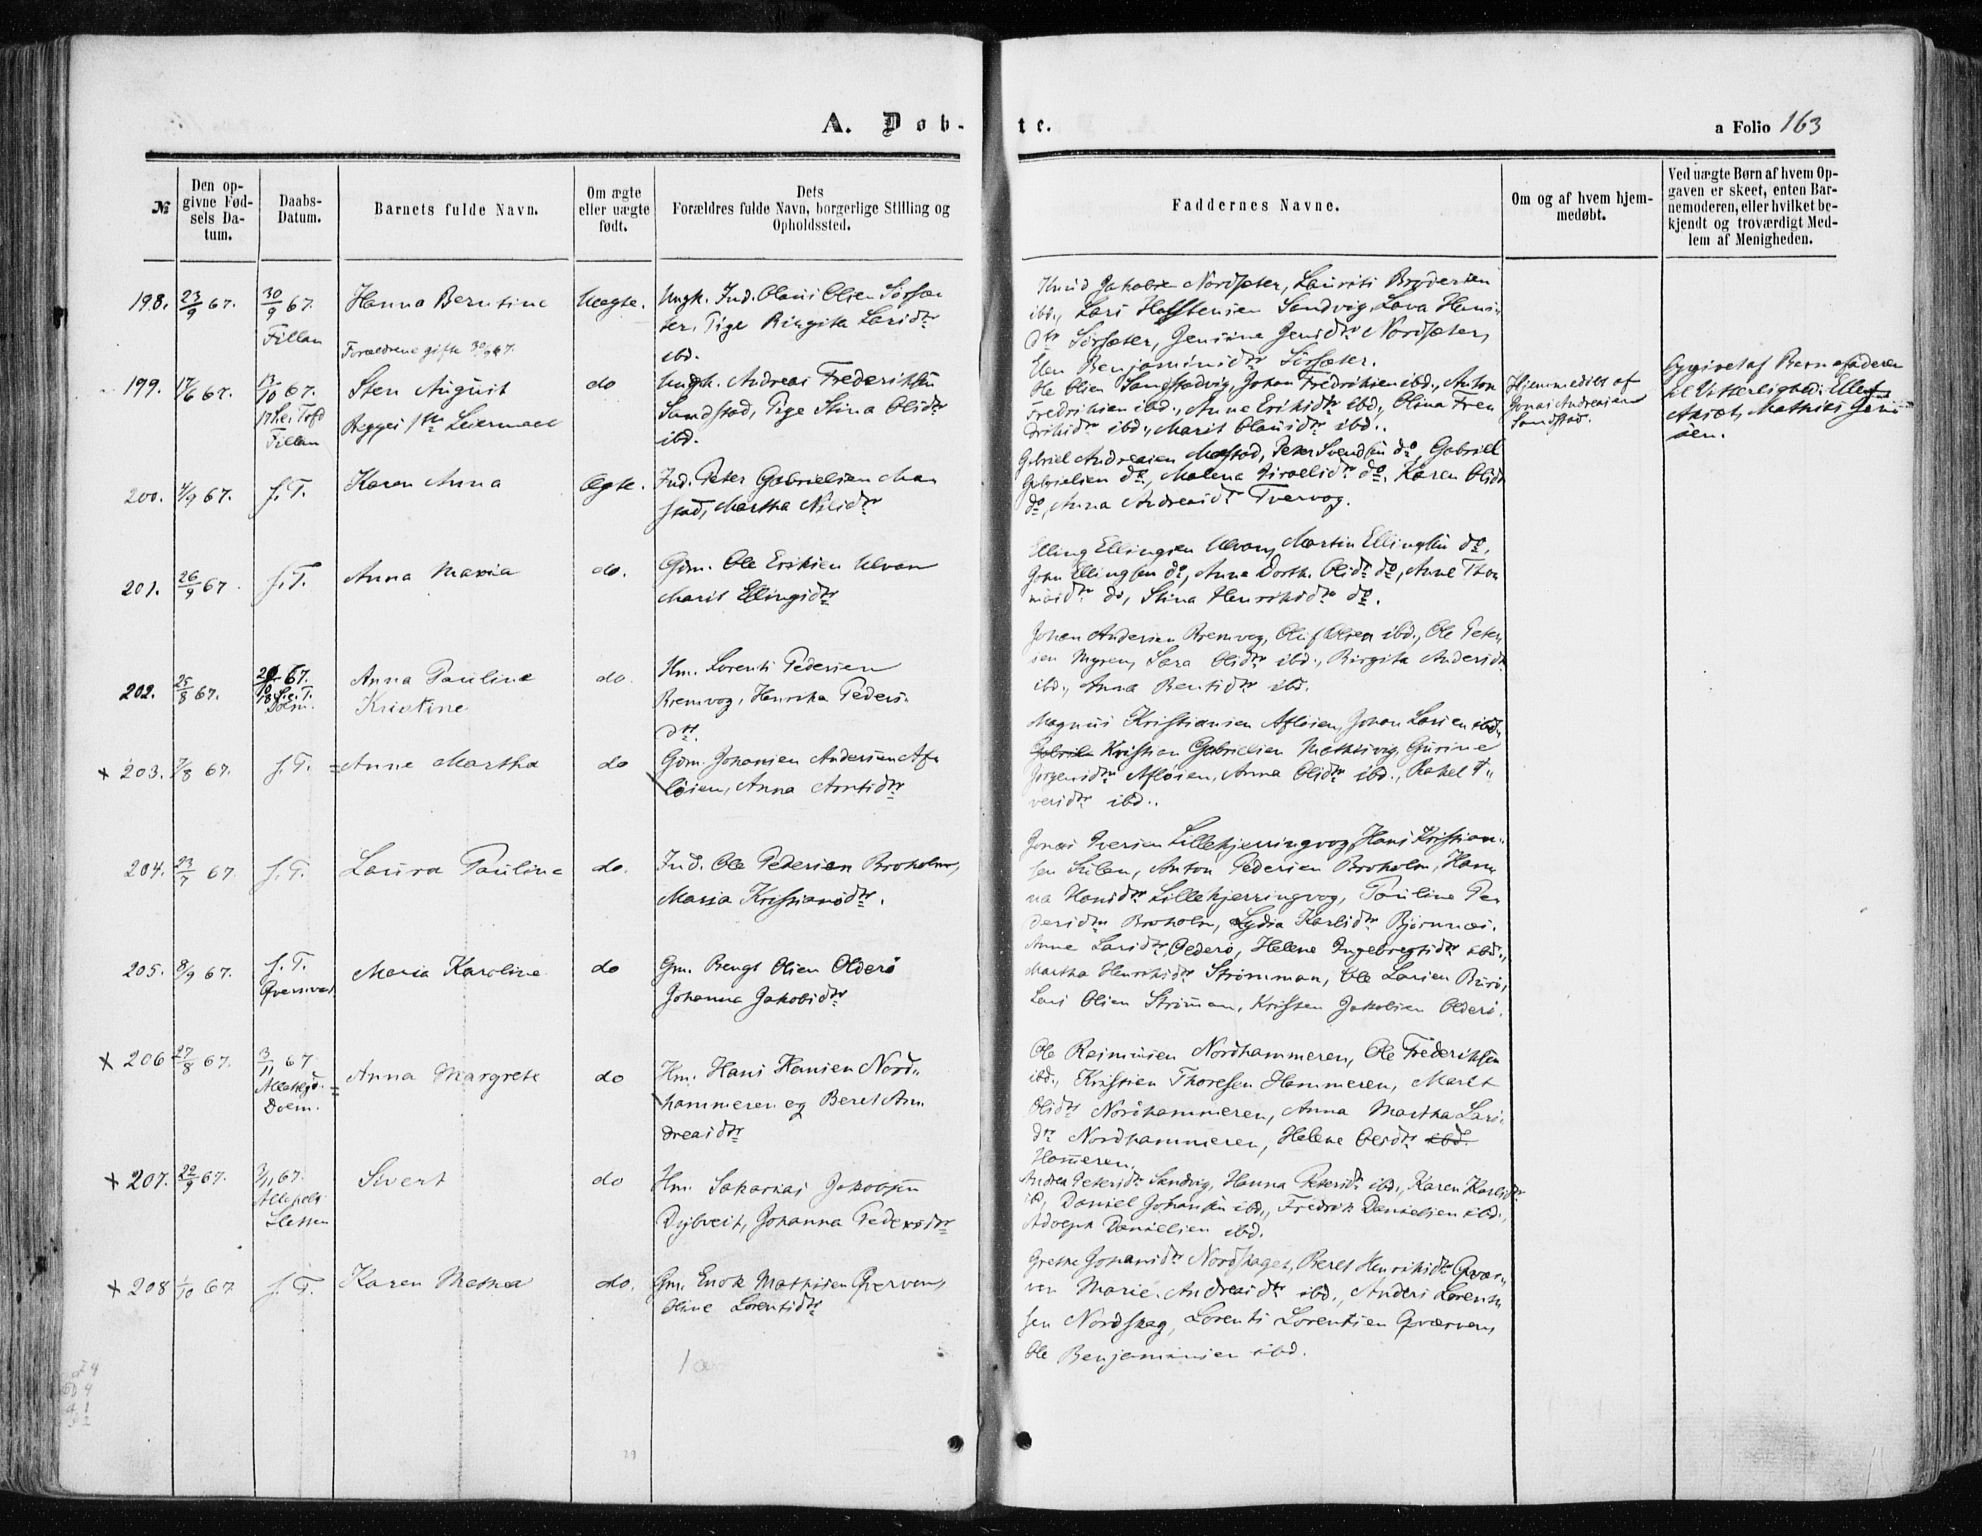 A. Døb-
te.
a Folio 163
№
Den op-
givne Fød-
sels Da-
tum.
Daabs-
Datum.
Barnets fulde Navn.
Om ægte
eller uægte
født.
Dets
Forældres fulde Navn, borgerlige Stilling og
Opholdssted.
Faddernes Navne.
Om og af hvem hjem-
medøbt.
Ved uægte Børn af hvem Op-
gaven er skeet, enten Bar-
nemoderen, eller hvilket be-
kjendt og troværdigt Med-
lem af Menigheden.
198. 23/9 67.
30/9 67.
Fillan
Hanna Berntine
Forældrene gifte 30/9 67.
Uægte.
Ungk. Ind. Olaus Olsen Sørsæ
ter, Pige Birgita Larsdtr
ibd.
Knud Jakobsen Nordsæter, Laurits Brodersen
ibd., Lars Hals​tensen Sandvig, Lava Hans-
dtr Sørsæter, Jensine Jensdtr Nordsæter,
Elen Benjaminsdtr Sørsæter.
199. 17/6 67.
13/10 67.
17 S.e.Tref
Fillan
Sten August
Begges 1ste Leiermaal
do
Ungk. Andreas Frederiksen
Sandstad, Pige Stina Olsdtr
ibd.
Ole Olsen Sandstadvig, Johan Fredriksen ibd., Anton
Fredriksen ibd., Anne Eriksdtr ibd., Olina Fre
driksdtr ibd., Marit Olausdtr ibd..
Hjemmedøbt af
Jonas Andreasen
Sandstad.
Opgivet af Barnefaderen
til Vitterlighed: Ellef
Mathis Jen
sen.
200. 4/9 67.
s.T.
Karen Anna
Ægte.
Ind. Peter Gabrielsen Ma
stad, Martha Nilsdtr
Gabriel Andreasen Mastad, Peter Svendsen do, Gabriel
Gabrielsen do, Malena Israelsdtr do. Karen Olsdtr
do, Anna Andreasdtr Tvervog.
201. 26/9 67.
s.T.
Anna Maria
do.
Gdm. Ole Eriksen Ulvan
Marit Ellingsdtr
Elling Ellingsen Ulvan, Martin Ellingsen do,
John Ellingsen do, Anna Dorth. Olsdtr do, Anne Tho
masdtr do, Stina Henriksdtr do.
202. 25/8 67.
20/10 67.
18 S.e.T.
Dolm.
Anna Pauline
Kristine
do.
Hm. Lorents Pedersen
Bremvog, Henrika Peders-
dtr.
Johan Andersen Bremvog, Oluf Olsen ibd., Ole Peter
sen Myren, Sara Olsdtr ibd., Birgita Andersdtr
ibd., Anna Berntsdtr ibd.
× 203. 7/8 67.
s.T.
Anne Martha
do
Gdm. Johannes Andersen Afl
øien, Anna Arntsdtr
Magnus Kristiansen Afløien, Johan Larsen ibd.,
Kristian Gabrielsen Mebksvig, Gurine
Jørgensdtr Afløien, Anna Olsdtr ibd., Rakel I-
versdtr ibd..
204. 23/7 67.
s.T.
Laura Pauline
do.
Ind. Ole Pedersen Broholm,
Maria Kristiansdtr.
Jonas Iversen Lillekjerringvog, Hans Kristian-
sen Sulen, Anton Pedersen Broholm, Han
na Hansdtr Lillekjerringvog, Pauline Pe
dersdtr Broholm, Lydia Karlsdtr Bjørnnæs.
205. 8/9 67.
s.T.
Qvenvær
Maria Karoline
do
Gm. Bengt Olsen Olderø
Johanna Jakobsdtr
Anne Larsdtr Olderø, Helene Ingebregtsdtr ibd.,
Martha Henriksdtr Strømman, Ole Larsen Burø,
Lars Olsen Strømman, Kristen Jakobsen Olderø.
× 206 27/8 67.
3/11 67
Allehgd.
Dolm.
Anna Margrete
do
Hm. Hans Hansen Nord-
hammeren og Beret An
dreasdtr
Ole Rasmussen Nordhammeren, Ole Frederiksen
ibd., Kristen Thoresen Hammeren, Maret
Olsdtr Nordhammeren, Anna Martha Lars-
dtr Nordhammeren, Helene Olsdtr ibd.
Hameren.
× 207. 22/9 67.
3/11 67.
Allehels
Sletten
Sivert
do
Hm. Sakarias Jakobsen
Dybveit, Johanna Pedersdtr
Andrea Petersdtr Sandvig, Hanna Petersdtr ibd., Karen Karlsdtr
ibd, Daniel Johansen ibd., Fredrik Danielsen ibd.,
Adolph Danielsen ibd.
× 208 1/10 67.
s.T.
Karen
do.
Gm. Enok Mathisen Qverven,
Oline Lorentsdtr
Grethe Johansdtr Nordskaget, Beret Henriksdtr Qvær-
ven Marie Andreasdtr ibd., Anders Lorent
sen Nordskag, Lorents Lorentsen Qværven,
Ole Benjaminsen ibd.